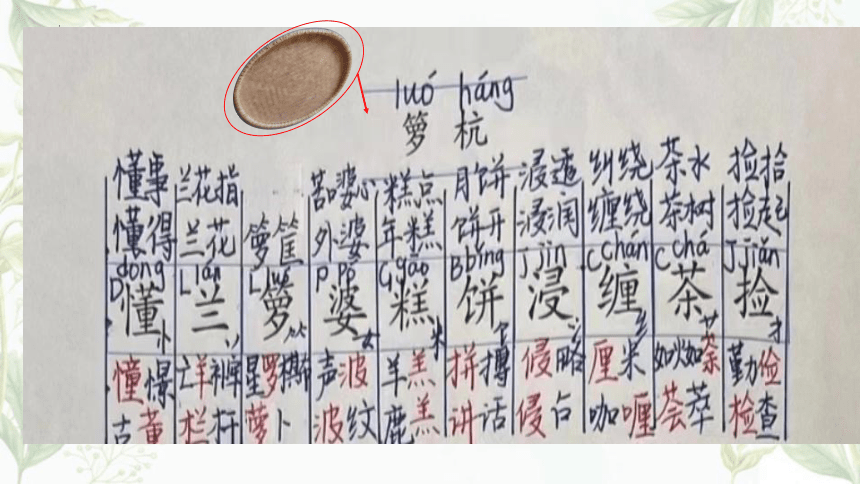 luó háng
箩 杭
懂事 兰花指 苦口婆心 糕点 月饼 浸透 纠绕 茶水 捡拾
懂得 兰花 箩筐 外婆 年糕 饼干 浸润 缠绕 茶树 捡起
dǒng lán luó pó gāo bǐng jìn chán chá jiǎn
D L L P G B J C C J
懂 兰 箩 婆 糕 饼 浸 缠 茶 捡
忄 丷 ⺮ 女 米 饣 氵 纟 艹 扌
憧憬 星罗棋布 声波 羊羔 拼搏 侵略 厘米 如火如荼 勤俭
古董 栏杆 萝卜 波纹 鹿羔 讲话 侵占 咖喱 荟萃 检查